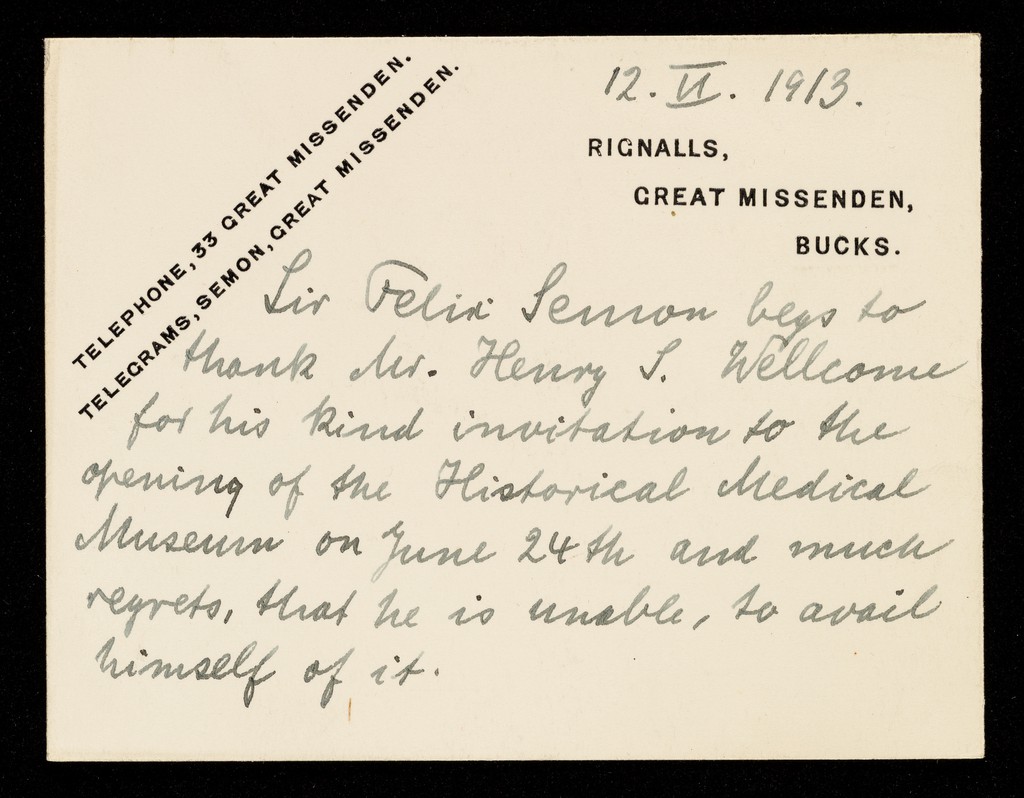 TELEPHONE, 33 GREAT MISSENDEN.
TELEGRAMS, SEMON, GREAT MISSENDEN.
12. VI. 1913.
RIGNALLS,
GREAT MISSENDEN,
BUCKS.
Sir Felix Semon begs to
thank Mr. Henry S. Wellcome
for his kind invitation to the
opening of the Historical Medical
Museum on June 24th and much
regrets, that he is unable, to avail
himself of it.